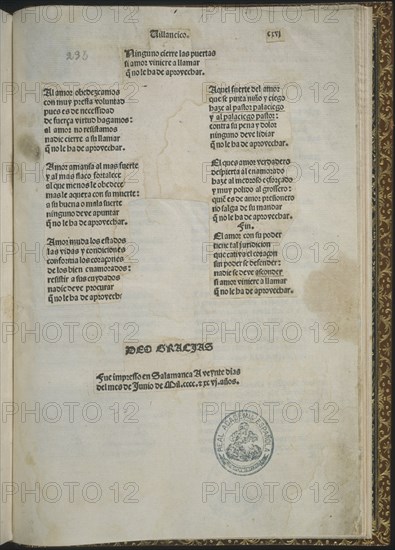 Villancico.
cxvj
293
Ninguno cierre las puertas
si amor viniere a llamar
q̃ no le ha de aprovechar.
Al amor obedezcamos
con muy presta voluntad
pues es de necessidad
de fuerça virtud hagamos:
al amor no resistamos
nadie cierre a su llamar
q̃ no le ha de aprovechar.
Amor amansa al mas fuerte
y al mas flaco fortalece
al que menos le obedece
mas le aquexa con su muerte:
a su buena o mala suerte
ninguno deve apuntar
q̃ no le ha de aprovechar.
Amor muda los estados
las vidas y condiciones
conforma los coraçones
de los bien enamorados:
resistir a sus cuydados
nadie deve procurar
q̃ no le ha de aprovechar
Aquel fuerte del amor
que se pinta niño y ciego
haze al pastor palaciego
y al palaciego pastor:
contra su pena y dolor
ninguno deve lidiar
q̃ no le ha de aprovechar.
El ques amor verdadero
despierta al enamorado
haze al medroso esforçado
y muy polido al grossero:
quiẽ es de amor prisionero
no salga de su mandar
q̃ no le ha de aprovechar.
Fin.
El amor con su poder
tiene tal juridicion
que cativa el coraçon
sin poder se defender:
nadie se deve asconder
si amor viniere a llamar
q̃ no le ha de aprovechar.
DEO GRACIAS
Fue impresso en Salamanca A veynte dias
del mes de Junio de Mil.cccc.xcvj.años.
REAL ACADEMIA ESPAÑOLA
PHOTO 12